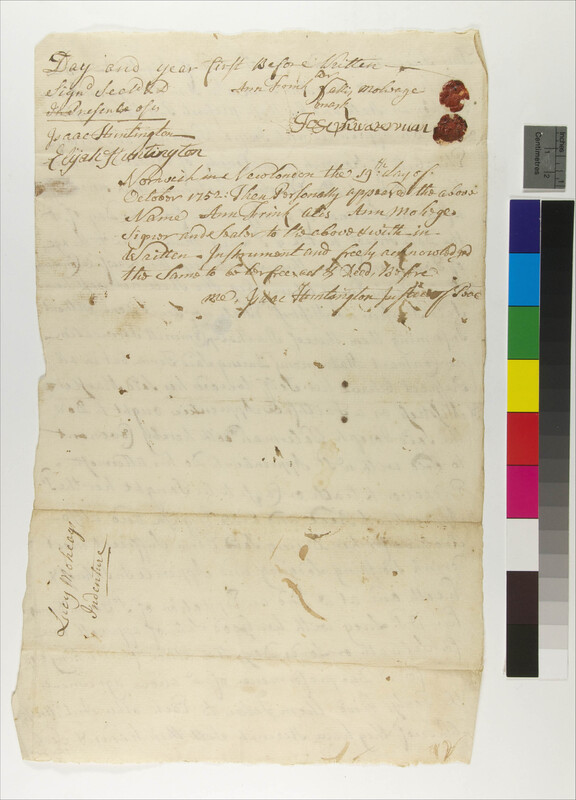 Day and year first Before Written
Sign'd Seal'd & D
In Presence of us
Isaac Huntington
Elijah Huntington
Ann Frink or
Nally Molrage
mark
Norwich in Newloncon the 19th day of
October 1752. Then Personally appeared the above
Name Ann Frink alis Ann Molrge
Signor and sealer to the above & with-in
Written Instrument and freely acknowledgd
the Same to be her free act & Deed, Before
me, Isaac Huntington Justice of Peac
Lucy
Indenture